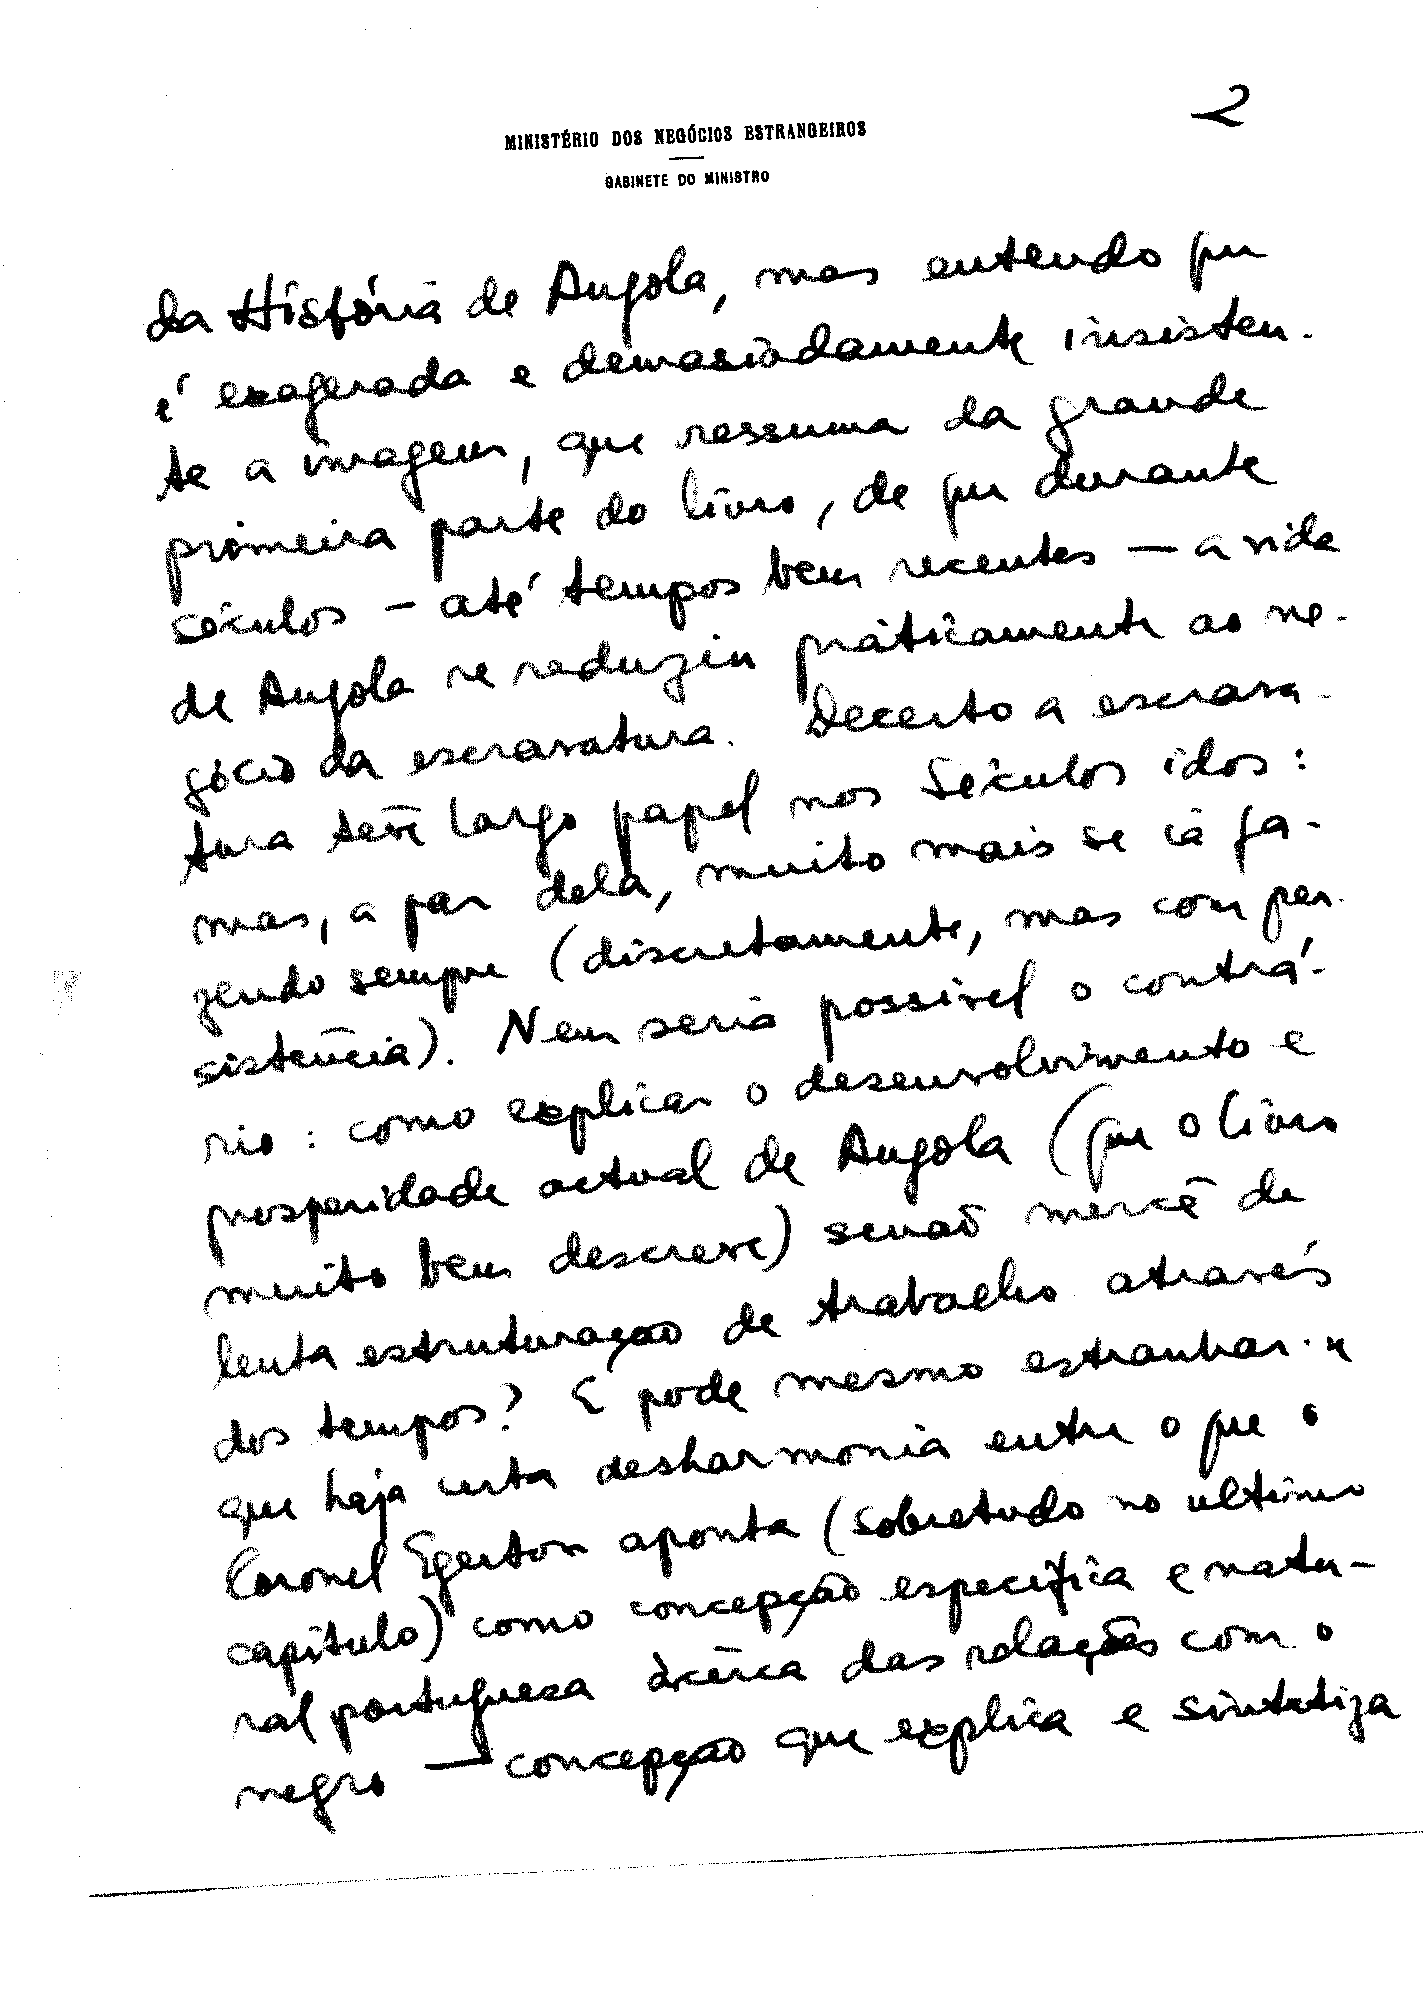 2
MINISTÉRIO DOS NEGÓCIOS ESTRANGEIROS
GABINETE DO MINISTRO
da História de Angola, mas entendo que
é exagerada e demasiadamente insisten-
te a imagem, que ressuma da grande
primeira parte do livro, de que durante
séculos – até tempos bem recentes – a vida
de Angola se reduziu práticamente ao ne-
gócio da escravatura. Decerto a escrava-
tura teve largo papel nos séculos idos:
mas, a par dela, muito mais se ia fa-
zendo sempre (discretamente, mas com per-
sistência). Nem seria possível o contrá-
rio: como explicar o desenvolvimento e
prosperidade actual de Angola (que o livro
muito bem descreve) senão mercê de
lenta estruturação de trabalho através
dos tempos? E pode mesmo estranhar-se
que haja certa desharmonia entre o que o
Coronel Egerton aponta (sobretudo no ultimo
capítulo) como concepção especifica e natu-
ral portuguesa àcêrca das relações com o
negro – concepção que explica e sintetiza